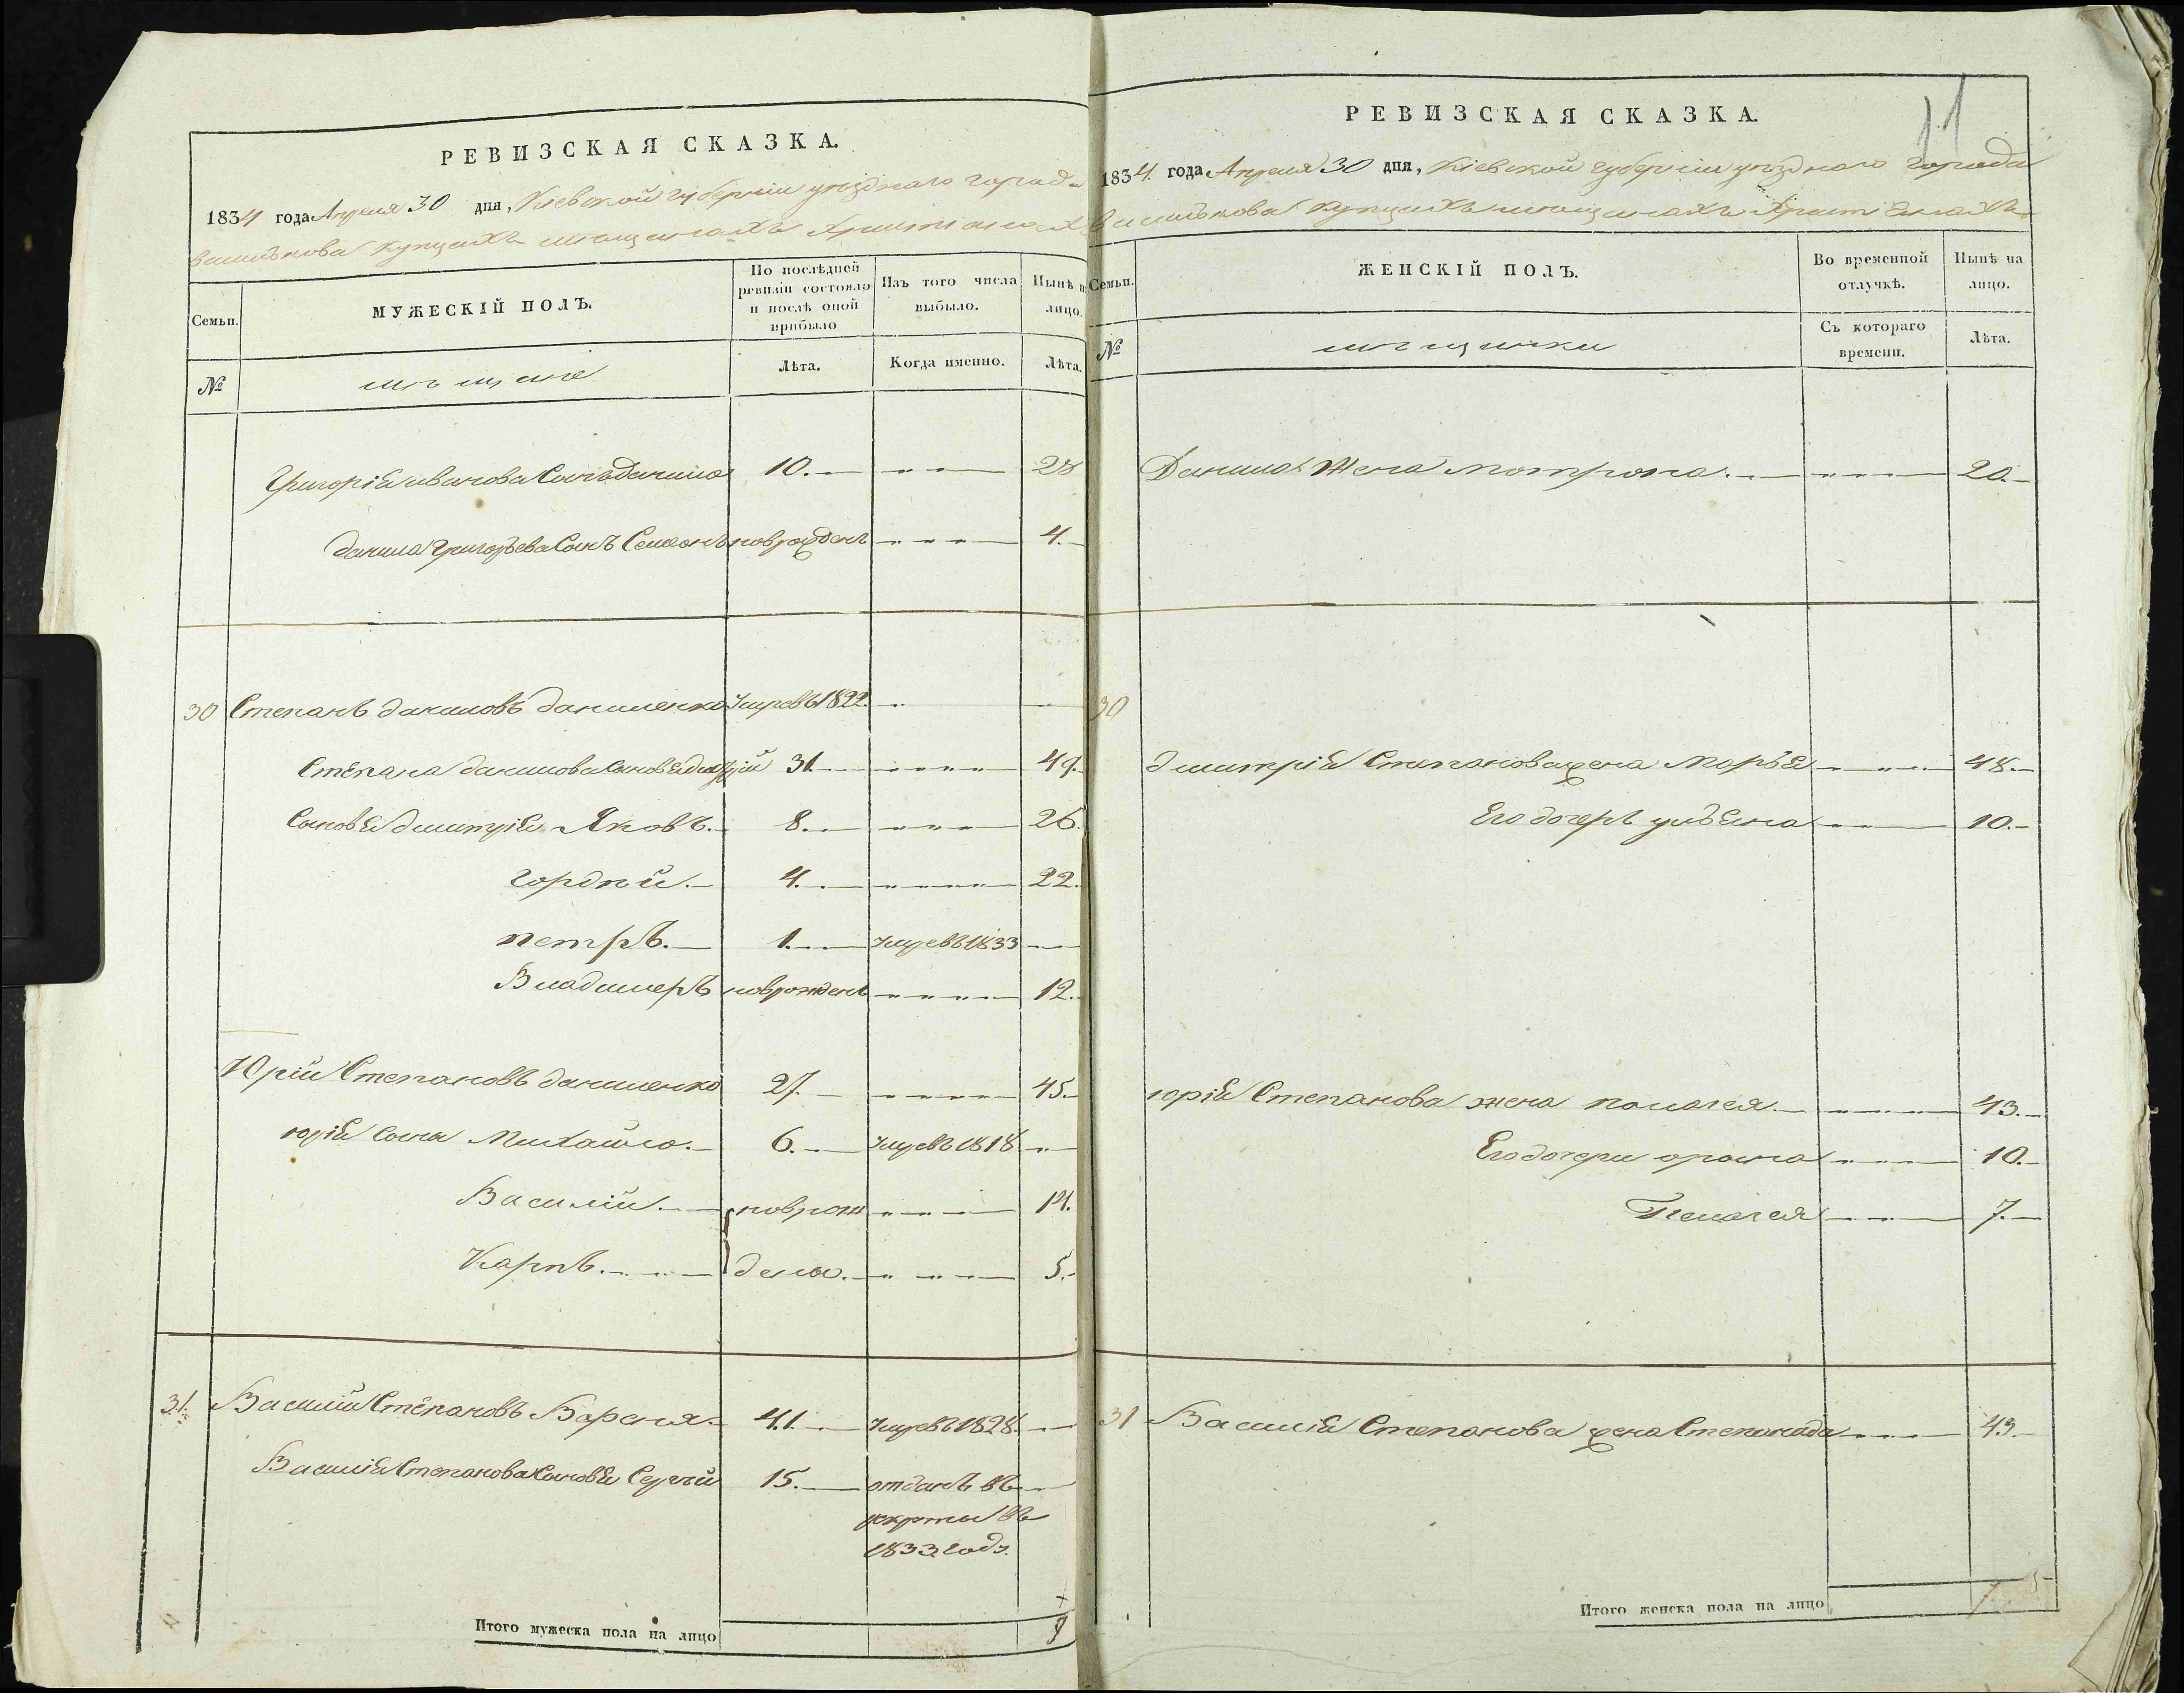 РЕВИЗСКАЯ СКАЗКА.
1834 года Апреля 30 дня, Кіевской губерніи уезднаго города
Василькова купцахъ мещанахъ христіанахъ
Семьи.
МУЖЕСКІЙ ПОЛЪ.
По послѣдней ревизіи состояло и послѣ оной прибыло
Изъ того числа выбыло.
Нынѣ на лицо.
№
мещане
Лѣта.
Когда именно.
Лѣта.
Григорія иванова Сынъ данило 10. 28
данила Григорьева Сынъ Семенъ новрожденъ 4.
30 Степанъ даниловъ даниленко умревъ 1822.
Степана данилова Сыновья дмитрій 31. 49.
Сыновья дмитрія Яковъ. 8. 26.
гордѣй. 4. 22.
петръ. 1. умревъ 1833
Владимеръ новрожденъ 12.
Юрій Степановъ даниленко 27. 45.
юрія Сыны Михайло. 6. умревъ 1818
Василій. новрож 14.
Карпъ. дены. 5.
31. Василій Степановъ 41. умревъ 1828.
Василія Степанова Сыновья Сергѣй 15. отданъ въ
рекруты въ
1833 году.
Итого мужеска пола на лицо 8
11
РЕВИЗСКАЯ СКАЗКА.
1834. года Апреля 30 дня, Кіевской губерніи уезднаго города
Василькова купцахъ мещанахъ христіянахъ
Семьи.
ЖЕНСКІЙ ПОЛЪ.
Во временной отлучкѣ.
Нынѣ на лицо.
№
мещанки
Съ котораго времени.
Лѣта.
Данила Жена мотрона. 20.
30
дмитрія Степанова жена Марья 48.
Его дочерь ульяна 10.
юрія Степанова жена полагея. 43.
Его дочери орына 10.
Пелагея 7.
31 Василія Степанова жена Степанида 43.
Итого женска пола на лицо 7